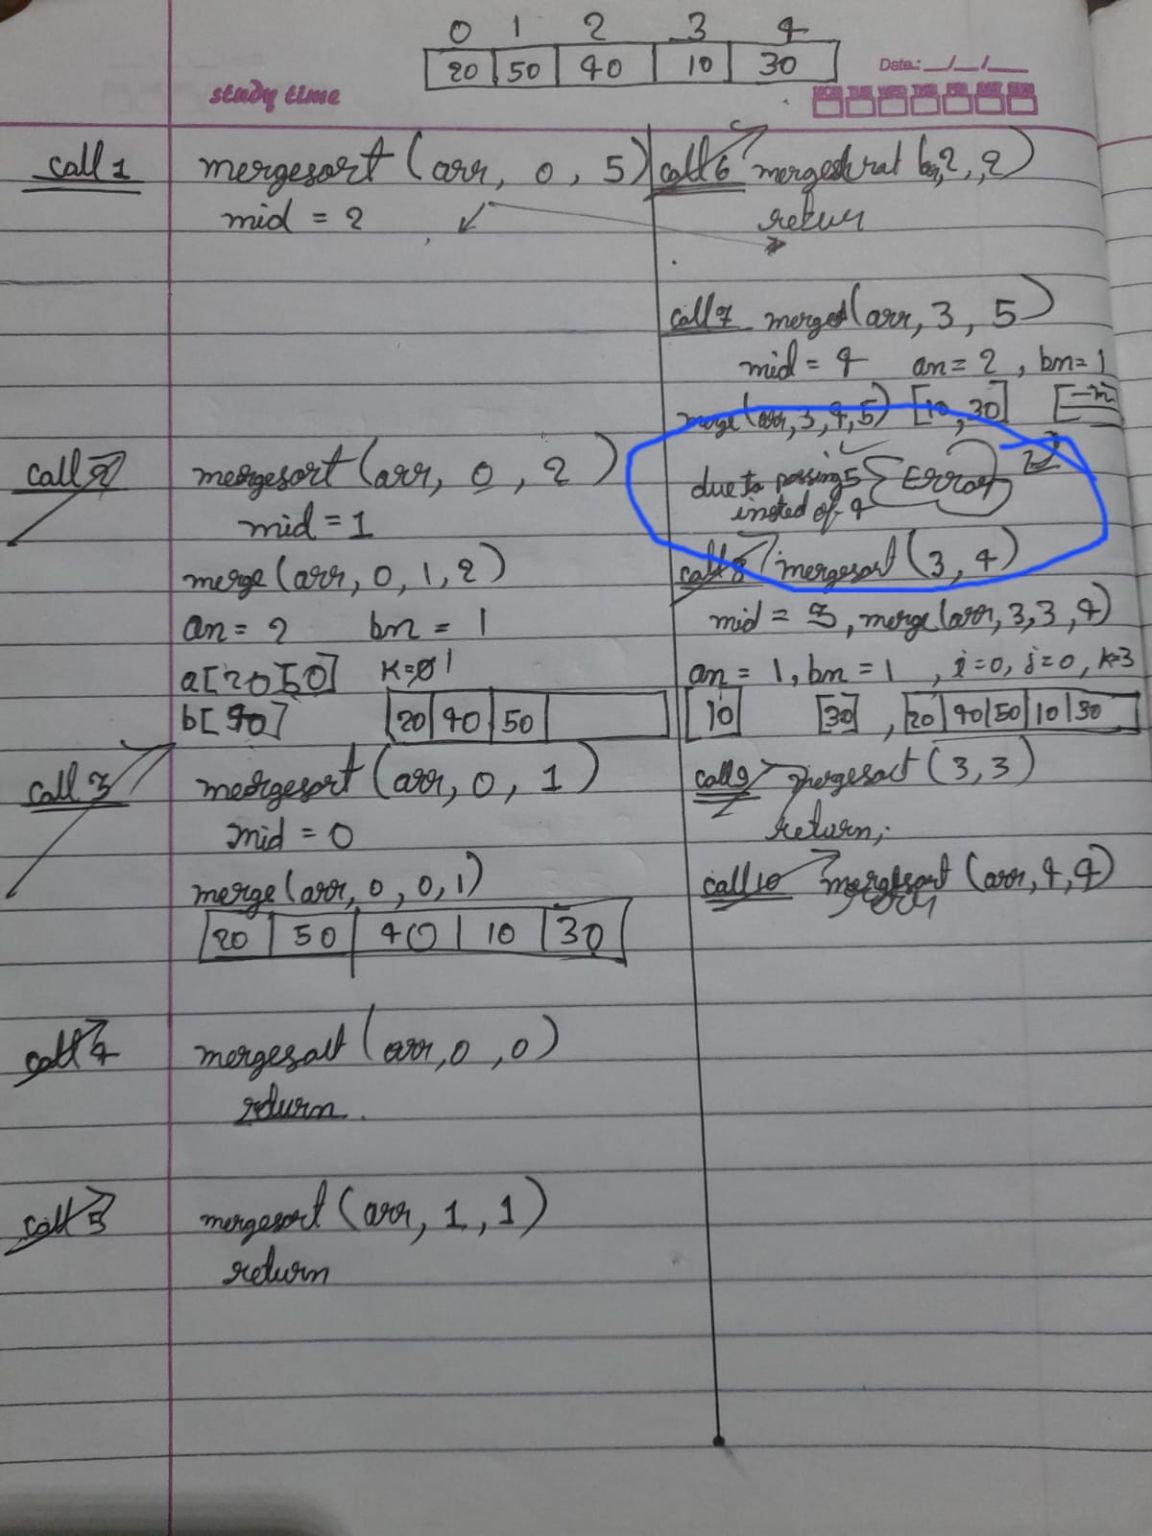 0 1 2 3 4
20 50 40 10 30
Date.: __/__/__
study time
call 1 mergesort (arr, 0, 5)
mid = 2
call 2 mergesort (arr, 0, 2)
mid = 1
merge (arr, 0, 1, 2)
an = 2 bn = 1
a[20 50] K=0 1
b[40] 20 40 50
call 3 mergesort (arr, 0, 1)
mid = 0
merge (arr, 0, 0, 1)
20 50 40 10 30
call 4 mergesort (arr, 0, 0)
return.
call 5 mergesort (arr, 1, 1)
return
call 6 2, 2)
return
call 7 (arr, 3, 5)
mid = 4 an = 2, bn = 1
merge (arr, 3, 4, 5) [10, 30]
due to passing 5 { Error }
insted of 4
call 8 mergesort (3, 4)
mid = 3, merge (arr, 3, 3, 4)
an = 1, bn = 1, i=0, j=0, k=3
[10] [30], 20 40 50 10 30
call 9 mergesort (3, 3)
return;
call 10 mergesort (arr, 4, 4)